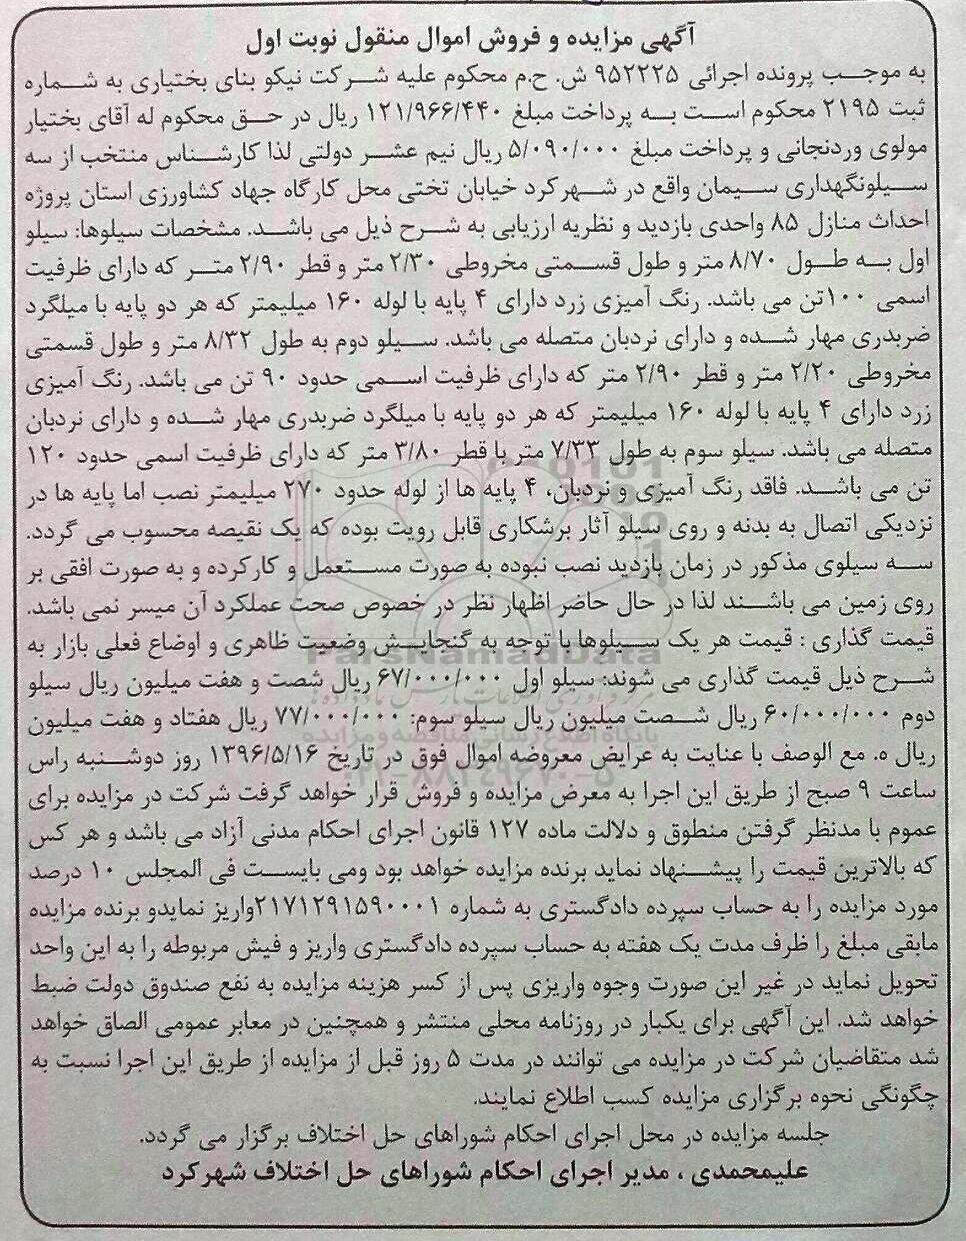 آگهی مزایده و فروش اموال منقول نوبت اول
به موجب پرونده اجرائی ۹۵۲۲۲۵ ش. ح.م محکوم علیه شرکت نیکو بنای بختیاری به شماره
ثبت ۲۱۹۵ محکوم است به پرداخت مبلغ ۱۲۱/۹۶۶/۴۴۰ ریال در حق محکوم له آقای بختیار
مولوی وردنجانی و پرداخت مبلغ ۵/۰۹۰/۰۰۰ ریال نیم عشر دولتی لذا کارشناس منتخب از سه
سیلونگهداری سیمان واقع در شهرکرد خیابان تختی محل کارگاه جهاد کشاورزی استان پروژه
احداث منازل ۸۵ واحدی بازدید و نظریه ارزیابی به شرح ذیل می باشد. مشخصات سیلوها: سیلو
اول به طول ۸/۷۰ متر و طول قسمتی مخروطی ۲/۳۰ متر و قطر ۲/۹۰ متر که دارای ظرفیت
اسمی ۱۰۰تن می باشد. رنگ آمیزی زرد دارای ۴ پایه با لوله ۱۶۰ میلیمتر که هر دو پایه با میلگرد
ضربدری مهار شده و دارای نردبان متصله می باشد. سیلو دوم به طول ۸/۳۲ متر و طول قسمتی
مخروطی ۲/۲۰ متر و قطر ۲/۹۰ متر که دارای ظرفیت اسمی حدود ۹۰ تن می باشد. رنگ آمیزی
زرد دارای ۴ پایه با لوله ۱۶۰ میلیمتر که هر دو پایه با میلگرد ضربدری مهار شده و دارای نردبان
متصله می باشد. سیلو سوم به طول ۷/۳۳ متر با قطر ۳/۸۰ متر که دارای ظرفیت اسمی حدود ۱۲۰
تن می باشد. فاقد رنگ آمیزی و نردبان، ۴ پایه ها از لوله حدود ۲۷۰ میلیمتر نصب اما پایه ها در
نزدیکی اتصال به بدنه و روی سیلو آثار برشکاری قابل رویت بوده که یک نقیصه محسوب می گردد.
سه سیلوی مذکور در زمان بازدید نصب نبوده به صورت مستعمل و کارکرده و به صورت افقی بر
روی زمین می باشند لذا در حال حاضر اظهار نظر در خصوص صحت عملکرد آن میسر نمی باشد.
قیمت گذاری : قیمت هر یک سیلوها با توجه به گنجایش وضعیت ظاهری و اوضاع فعلی بازار به
شرح ذیل قیمت گذاری می شوند: سیلو اول ۶۷/۰۰۰/۰۰۰ ریال شصت و هفت میلیون ریال سیلو
دوم ۶۰/۰۰۰/۰۰۰ ریال شصت میلیون ریال سیلو سوم: ۷۷/۰۰۰/۰۰۰ ریال هفتاد و هفت میلیون
ریال ه. مع الوصف با عنایت به عرایض معروضه اموال فوق در تاریخ ۱۳۹۶/۵/۱۶ روز دوشنبه راس
ساعت ۹ صبح از طریق این اجرا به معرض مزایده و فروش قرار خواهد گرفت شرکت در مزایده برای
عموم با مدنظر گرفتن منطوق و دلالت ماده ۱۲۷ قانون اجرای احکام مدنی آزاد می باشد و هر کس
که بالاترین قیمت را پیشنهاد نماید برنده مزایده خواهد بود ومی بایست فی المجلس ۱۰ درصد
مورد مزایده را به حساب سپرده دادگستری به شماره ۲۱۷۱۲۹۱۵۹۰۰۰۱واریز نمایدو برنده مزایده
مابقی مبلغ را ظرف مدت یک هفته به حساب سپرده دادگستری واریز و فیش مربوطه را به این واحد
تحویل نماید در غیر این صورت وجوه واریزی پس از کسر هزینه مزایده به نفع صندوق دولت ضبط
خواهد شد. این آگهی برای یکبار در روزنامه محلی منتشر و همچنین در معابر عمومی الصاق خواهد
شد متقاضیان شرکت در مزایده می توانند در مدت ۵ روز قبل از مزایده از طریق این اجرا نسبت به
چگونگی نحوه برگزاری مزایده کسب اطلاع نمایند.
جلسه مزایده در محل اجرای احکام شوراهای حل اختلاف برگزار می گردد.
علیمحمدی ، مدیر اجرای احکام شوراهای حل اختلاف شهرکرد
ParsNamadData
پایگاه اطلاع رسانی مناقصه و مزایده